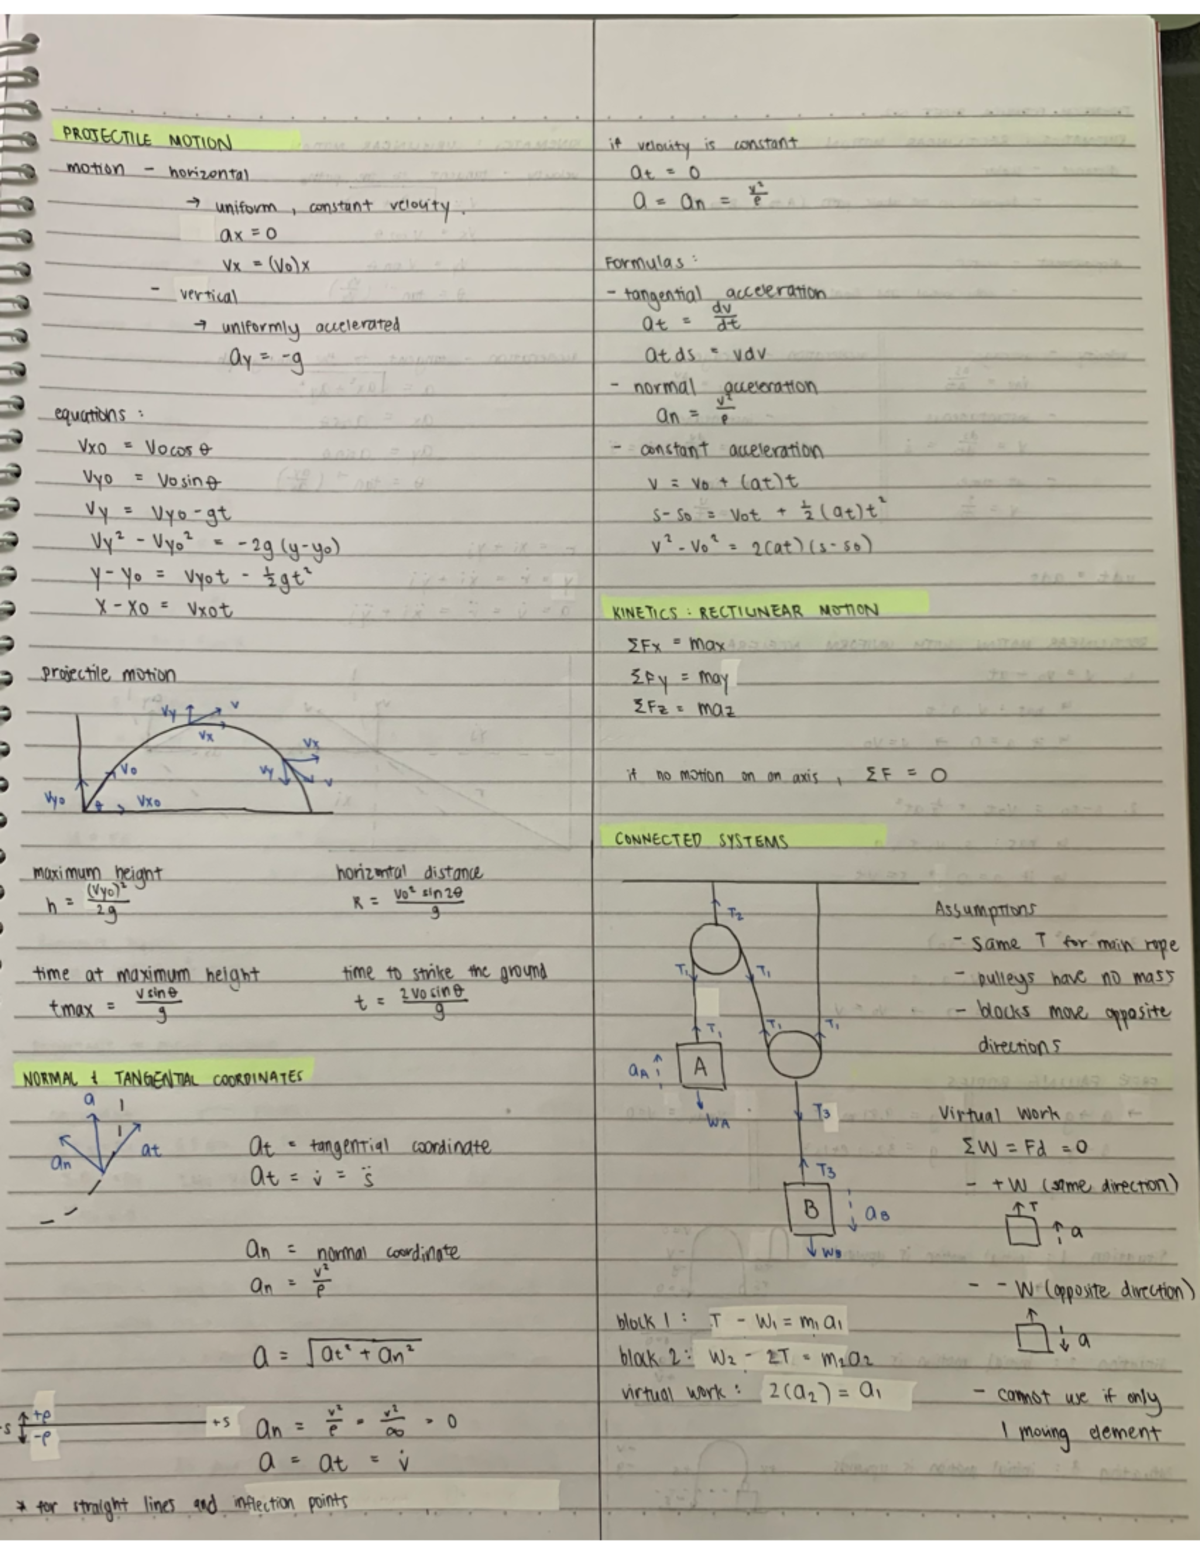 PROJECTILE MOTION
motion - horizontal
→ uniform, constant velocity.
ax = 0
vx = (v0)x
- vertical
→ uniformly accelerated
ay = -g
equations :
Vxo = Vocos θ
Vyo = Vosinθ
Vy = Vyo - gt
Vy² - Vyo² = -2g (y-yo)
y - yo = Vyot - ½gt²
x - xo = Vxot
projectile motion
Vy
V
Vx
Vx
Vo
Vy
V
Vyo
θ
Vxo
maximum height
h = (Vyo)²/2g
horizontal distance
R = Vo² sin2θ/g
time at maximum height
tmax = vsinθ/g
time to strike the ground
t = 2Vosinθ/g
NORMAL & TANGENTIAL COORDINATES
a
an
at
at = tangential coordinate
at = v̇ = s̈
an = normal coordinate
an = v²/ρ
a = √(at² + an²)
-s
+ρ
-ρ
+s
an = v²/ρ = v²/∞ = 0
a = at = v̇
* for straight lines and inflection points
if velocity is constant
at = 0
a = an = v²/ρ
Formulas :
- tangential acceleration
at = dv/dt
at ds = vdv
- normal acceleration
an = v²/ρ
- constant acceleration
v = vo + (at)t
s-so = Vot + ½(at)t²
v² - Vo² = 2(at)(s-so)
KINETICS : RECTILINEAR MOTION
ΣFx = max
ΣFy = may
ΣFz = maz
if no motion on an axis, ΣF = 0
CONNECTED SYSTEMS
T2
T1
T1
T1
T1
T1
aA
A
WA
T3
T3
B
aB
WB
Assumptions
- same T for main rope
- pulleys have no mass
- blocks move opposite
directions
Virtual Work
ΣW = Fd = 0
- +W (same direction)
T
a
- -W (opposite direction)
a
- cannot use if only
1 moving element
block 1 : T - W1 = m1a1
block 2 : W2 - 2T = m2a2
virtual work : 2(a2) = a1